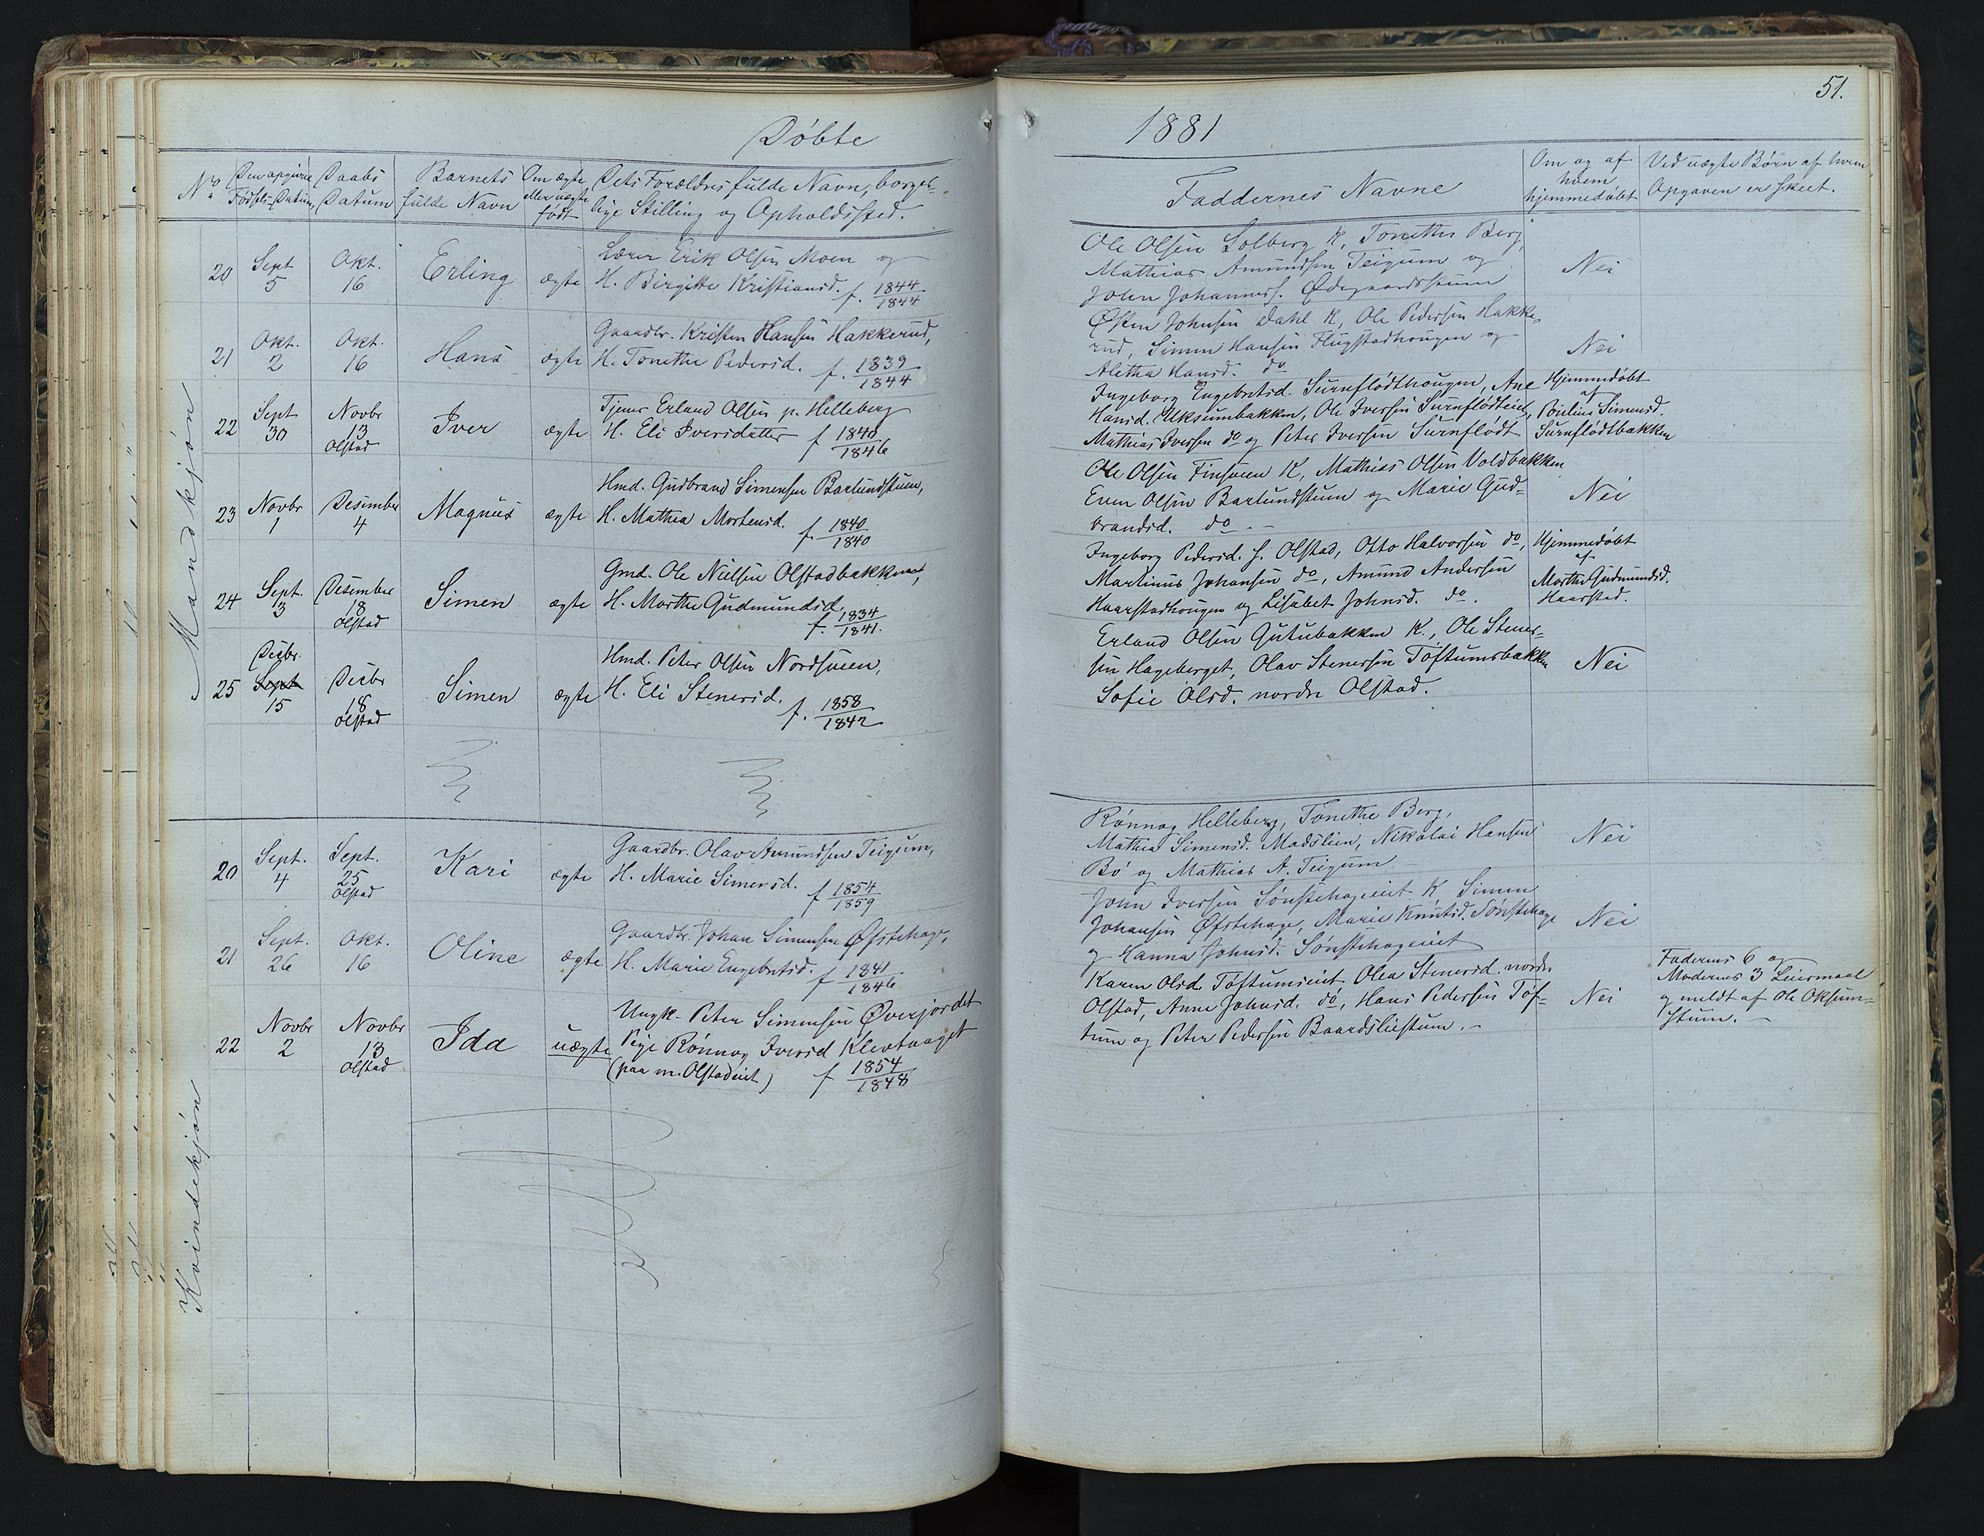 51.
Døbte
1881
No
Den opgivne Fødsels-Datum
Daabs Datum
Barnets fulde Navn
Om ægte eller uægte født
Dets Forældres fulde Navn, borgerlige Stilling og Opholdssted.
Faddernes Navne
Om og af hvem hjemmedøbt
Ved uægte Børn af hvem Opgaven er skeet.
Mandkjøn
20 Sept 5 Okt. 16 Erling ægte
Lærer Erik Olsen Moen og
H. Birgitte Kristiansd. f. 1844/1844
Ole Olsen Solberg K, Tonethe Berg,
Mathias Amundsen Teigum og
John Johannes. Ødegaardsstuen
Nei
21 Okt. 2 Okt. 16 Hans ægte
Gaardbr. Kristen Hansen Hakkerud,
H. Tonethe Pedersd. f. 1839/1844
Østen Johnsen Dahl K, Ole Pedersen Hakke-
rud, Simen Hansen Flugstadhougen og
Alethe Hansd. do
Nei
22 Sept 30 Novbr 13 Olstad Iver ægte
Tjener Erland Olsen p. Helleberg
H. Eli Iversdatter f 1840/1846
Ingeborg Engebretsd. Surnflødthougen, Ane
Hansd. Uksumbakken, Ole Iversen Surnflødteiet,
Mathias Iversen do og Peter Iversen Surnflødt
Hjemmedøbt
af
Simensd.
Surnflødtbakken
23 Novbr 1 Desember 4 Magnus ægte
Hmd. Gudbrand Simensen Barlundstuen,
H. Mathea Mortensd. f. 1840/1840
Ole Olsen Finsveen K, Mathias Olsen Voldbakken
Even Olsen Barlundstuen og Marie Gud-
brandsd. do -
Nei
24 Sept. 3 Desember 18 Olstad Simen ægte
Gmd. Ole Nielsen Olstadbakken,
H. Marthe Gudmundsd. f. 1834/1841.
Ingeborg Pedersd. s. Olstad, Otto Halvorsen do,
Martinus Johansen do, Amund Andersen
Haarstadhougen og Lisabet Johnsd. do.
Hjemmedøbt
af
Marthe Gudmundsd.
Haarstad.
25 Desbr. Sept 15 Desbr 18 Olstad Simen ægte
Hmd. Peter Olsen Nordsveen,
H. Eli Stenersd. f. 1858/1842
Erland Olsen Gutubakken K., Ole Stener-
sen Hageberget, Olav Stenersen Toftumsbakken
Sofie Olsd. nordre Olstad.
Nei
Kvindekjøn
20 Sept. 4 Sept. 25 Olstad Kari ægte
Gaardbr. Olav Amundsen Teigum,
H. Marie Simensd. f 1854/1859
Rønnog Helleberg, Tonethe Berg,
Mathea Simensd. Madslien, Nikolai Hansen
Bø og Mathias A. Teigum
Nei
21 Sept. 26 Okt. 16 Oline ægte
Gaardbr. Johan Simensen Øfstehage,
H. Marie Engebretsd. f 1841/1846
John Iversen Sønstehageeiet K Simen
Johansen Øfstehage, Marie Knutsd. Sønstehage
og Hanna Johnsd. Sønstehageeiet
Nei
22 Novbr 2 Novbr 13 Olstad Ida uægte
Ungk. Peter Simensen Øverjordet
Pige Rønnog Iversd Klevtaaget
(paa n. Olstadeiet) f 1854/1848
Karen Olsd. Toftumseiet Olea Stenersd. nordre
Olstad, Anne Johnsd. do, Hans Pedersen Tof-
tum og Peter Pedersen Baardsliestuen. -
Nei
Faderens 6 og
Moderens 3 Leiermaal
gmeldt af Ole Oksum-
stuen. -